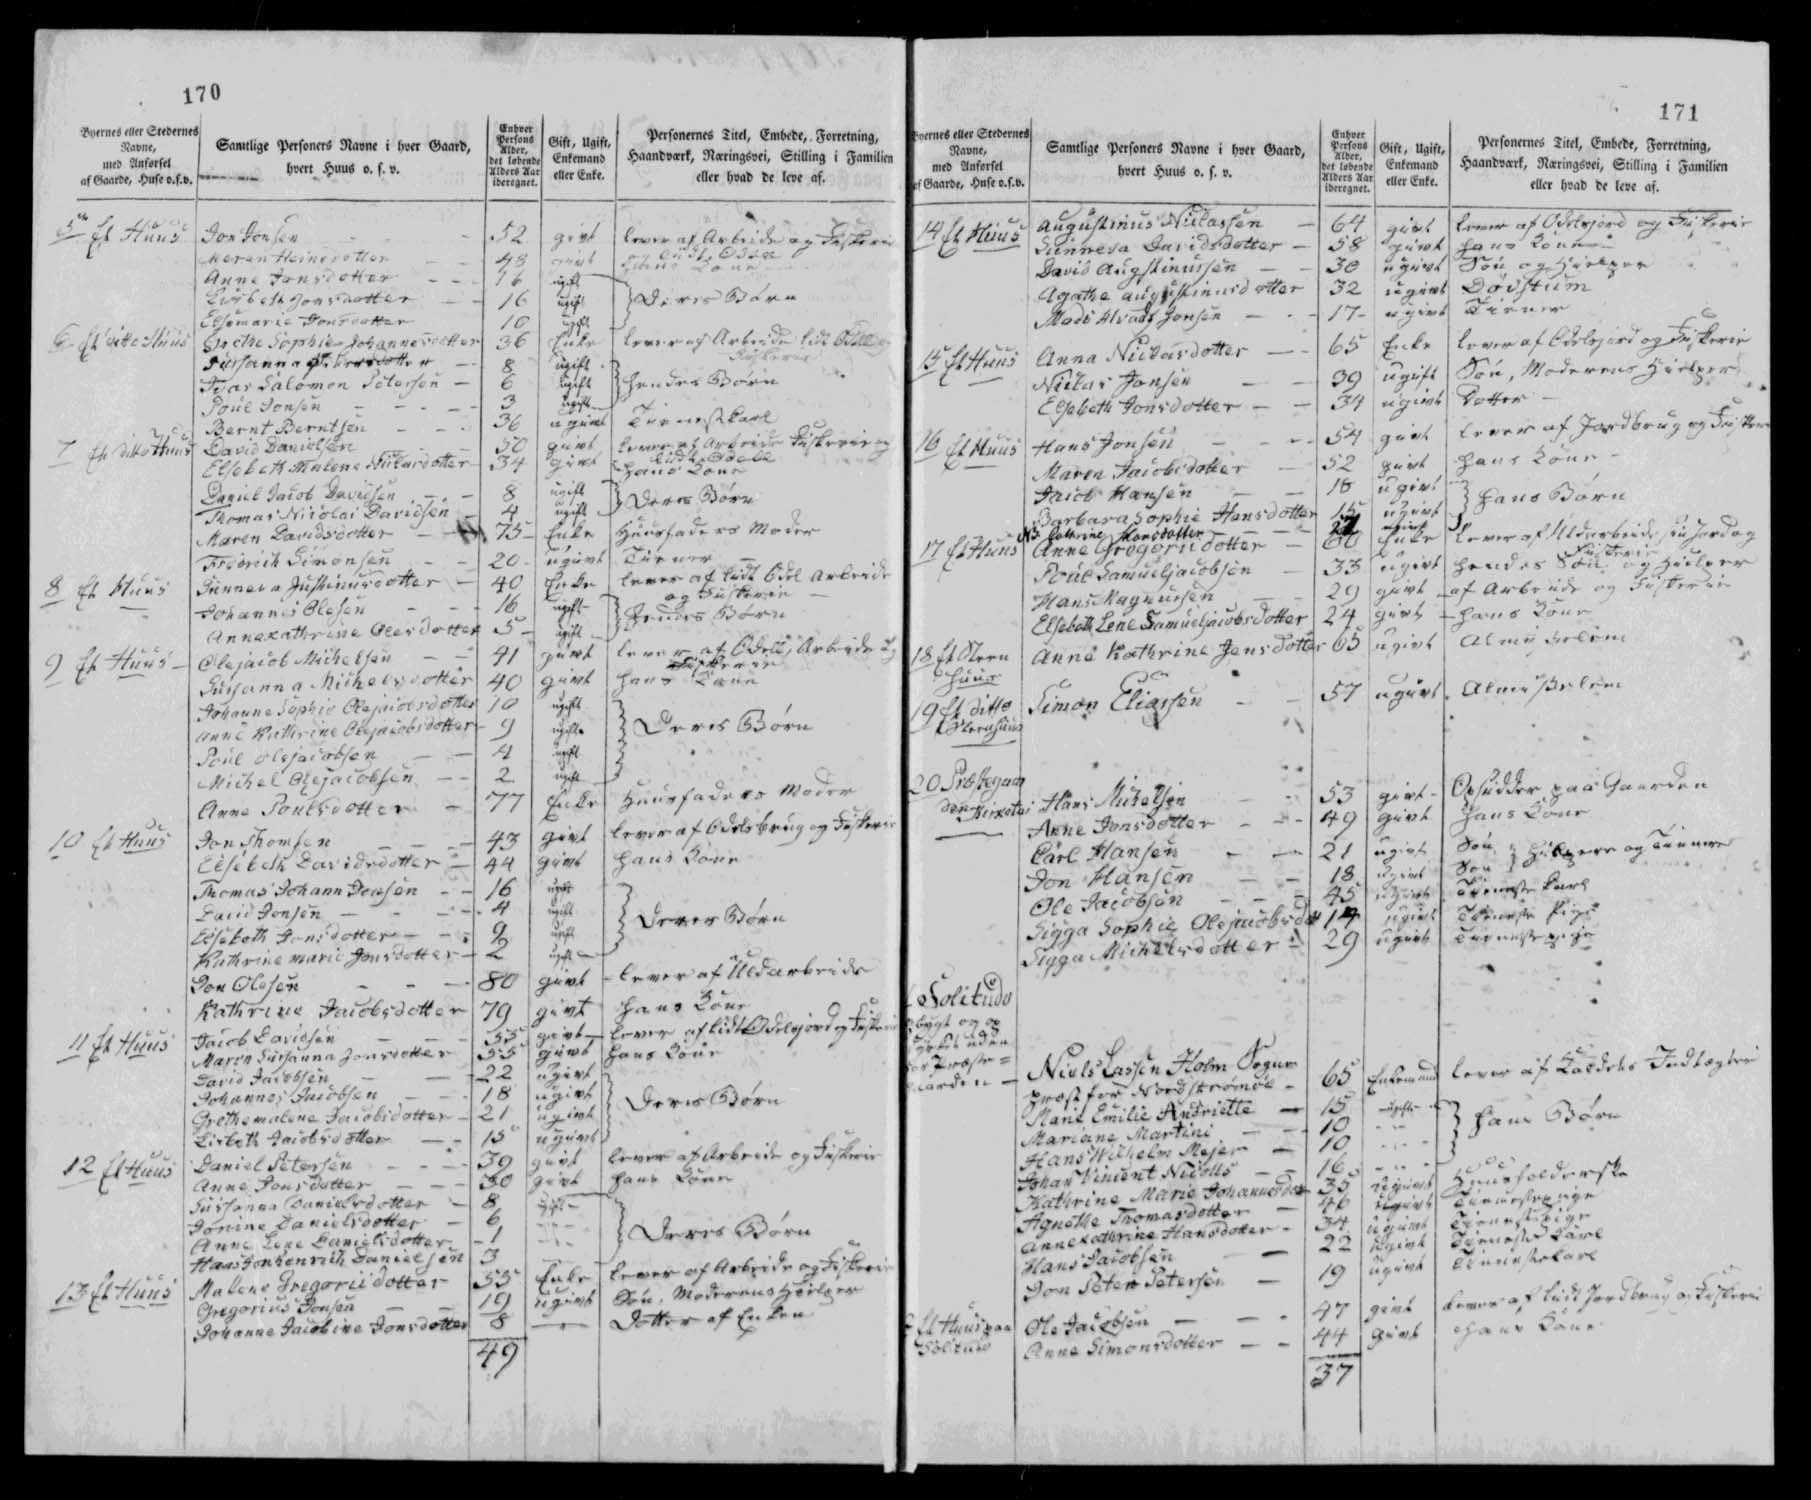 170
Byernes eller Stedernes Navne, med Anførsel af Gaarde, Huse o.s.v.
Samtlige Personers Navne i hver Gaard, hvert Huus o. s. v.
Enhver Persons Alder, det løbende Alders Aar iberegnet.
Gift, Ugift, Enkemand eller Enke.
Personernes Titel, Embede, Forretning, Haandværk, Næringsvei, Stilling i Familien eller hvad de leve af.
5 Et Huus Jon Jonsen 52 givt lever af Arbeide og Fiskerie
og lidt Odel
Maren Heinesdotter 48 givt hans Kone
Anne Jonsdotter 16 ugift
Lisbeth Jonsdotter 16 ugift Deres Børn
Elsemarie Jonsdotter 10 ugift
6 Et ditto Huus Grethe Sophie Johannesdotter 36 Enke lever af Arbeide lidt Odel og
Fiskerie
Susanna Petersdotter 8 ugift
Joas Salomon Petersen 6 ugift hendes Børn
Poul Jonsen 3 ugift
Bernt Berntsen 36 ugivt Tienestkarl
7 Et ditto Huus David Danielsen 50 givt lever af Arbeide Fiskerie og
lidt Odel
Elsebeth Malene Niclasdotter 34 givt hans Kone
Daniel Jacob Davidsen 8 ugift Deres Børn
Thomas Nicolai Davidsen 4 ugift
Maren Davidsdotter 75 Enke Huusfaders Moder
Fredrich Simonsen 20 ugivt Tiener
8 Et Huus Sunneva Justinusdotter 40 Enke lever af lidt Odel Arbeide
og Fiskerie
Johannes Olesen 16 ugift hendes Børn
Annekathrine Olesdotter 5 ugift
9 Et Huus Olejacob Michelsen 41 givt lever af Odel, Arbeide og
Fiskerie
Susanna Michelsdotter 40 givt hans Kone
Johanne Sophie Olejacobsdotter 10 ugift
Anne Kathrine Olejacobsdotter 9 ugift Deres Børn
Poul Olejacobsen 4 ugift
Michel Olejacobsen 2 ugift
Anne Poulsdotter 77 Enke Huusfaders Moder
10 Et Huus Jon Thomsen 43 givt lever af Odelsbrug og Fiskerie
Elsebeth Davidsdotter 44 givt hans Kone
Thomas Johann Jonsen 16 ugift
David Jonsen 4 ugift Deres Børn
Elsebeth Jonsdotter 9 ugift
Kathrine marie Jonsdotter 2 ugift
Jon Olesen 80 givt lever af Uldarbeide
Kathrine Jacobsdotter 79 givt hans Kone
11 Et Huus Jacob Davidsen 55 givt lever af lidt Odelsjord og Fiskerie
Maren Susanna Jonsdotter 55 givt hans Kone
David Jacobsen 22 ugivt
Johannes Jacobsen 18 ugivt Deres Børn
Grethemalene Jacobsdotter 21 ugivt
Lisbeth Jacobsdotter 15 ugivt
12 Et Huus Daniel Petersen 39 givt lever af Arbeide og Fiskerie
Anne Jonsdotter 30 givt hans Kone
Susanna Danielsdotter 8 ugift
Jonine Danielsdotter 6 Deres Børn
Anne Lene Danielsdotter 1
Hans Jonhenrich Danielsen 3
13 Et Huus Malene Gregoriidotter 55 Enke lever af Arbeide og Fiskerie
Gregorius Jonsen 19 ugivt Søn, Moderens Hielper
Johanne Jacobine Jonsdotter 8 Dotter af Enken
49
171
Byernes eller Stedernes Navne, med Anførsel af Gaarde, Huse o.s.v.
Samtlige Personers Navne i hver Gaard, hvert Huus o. s. v.
Enhver Persons Alder, det løbende Alders Aar iberegnet.
Gift, Ugift, Enkemand eller Enke.
Personernes Titel, Embede, Forretning, Haandværk, Næringsvei, Stilling i Familien eller hvad de leve af.
14 Et Huus Augustinus Niclassen 64 givt lever af Odelsjord og Fiskerie
Sunneva Davidsdotter 58 givt hans Kone
David Augustinussen 30 ugivt Søn og Hielper
Agathe Augustinusdotter 32 ugivt Døvstum
Mads Jonsen 17 ugivt Tiener
15 Et Huus Anna Niclasdotter 65 Enke lever af Odelsjord og Fiskerie
Niclas Jonsen 39 ugift Søn, Moderens Hielper
Elsebeth Jonsdotter 34 ugivt Dotter
16 Et Huus Hans Jonsen 54 givt lever af Jordbrug og Fiskerie
Maren Jacobsdotter 52 givt hans Kone
Jacob Hansen 18 ugivt hans Børn
Barbara Sophie Hansdotter 15 ugivt
NB Cathrine Hansdotter ugivt
17 Et Huus Anne Gregoriidotter 60 Enke lever af Uldarbeide og
Fiskerie
Poul Samueljacobsen 33 ugivt hendes Søn og Hielper
Hans Magnussen 29 givt af Arbeide og Fiskerie
Elsebeth Lene Samueljacobsdotter 24 givt hans Kone
18 Et Steenhuus Anne Kathrine Jensdotter 65 ugivt Almisselem
19 Et ditto Steenhuus Simon Eliassen 57 ugivt Almisselem
20 Præstegaarden Hans Michelsen 53 givt Opsidder paa Gaarden
Anne Jonsdotter 49 givt hans Kone
Carl Hansen 21 ugivt Søn Hielpere og Tienere
Jon Hansen 18 ugivt Søn
Ole Jacobsen 45 ugivt Tieneste karl
Sigga Sophie Olejacobsdr 14 ugivt Tieneste Pige
Sigga Michelsdotter 29 ugivt Tienestepige
Solitude
bygt og
uden
for Præste=
gaarden Niels Lassen Holm Sogne
præst for Nordstrømøe 65 Enkemand lever af Kaldets Indtægter
Marie Emilie Andriette 15 ugifte
Mariane Martini 10 hans Børn
Hans Wilhelm Mejer 10
Johan Vincent Nicolls 16
Kathrine Marie Johannesdr 35 ugivt Huusholderske
Agnethe Thomasdotter 46 ugivt Tienestepige
Annekathrine Hansdotter 34 ugivt Tienestepige
Hans Jacobsen 22 ugivt Tieneste Karl
Jon Peter Petersen 19 ugivt Tienestekarl
Et Huus paa Solitude Ole Jacobsen 47 givt lever af lidt Jordbrug og Fiskerie
Anne Simonsdotter 44 givt hans Kone
37